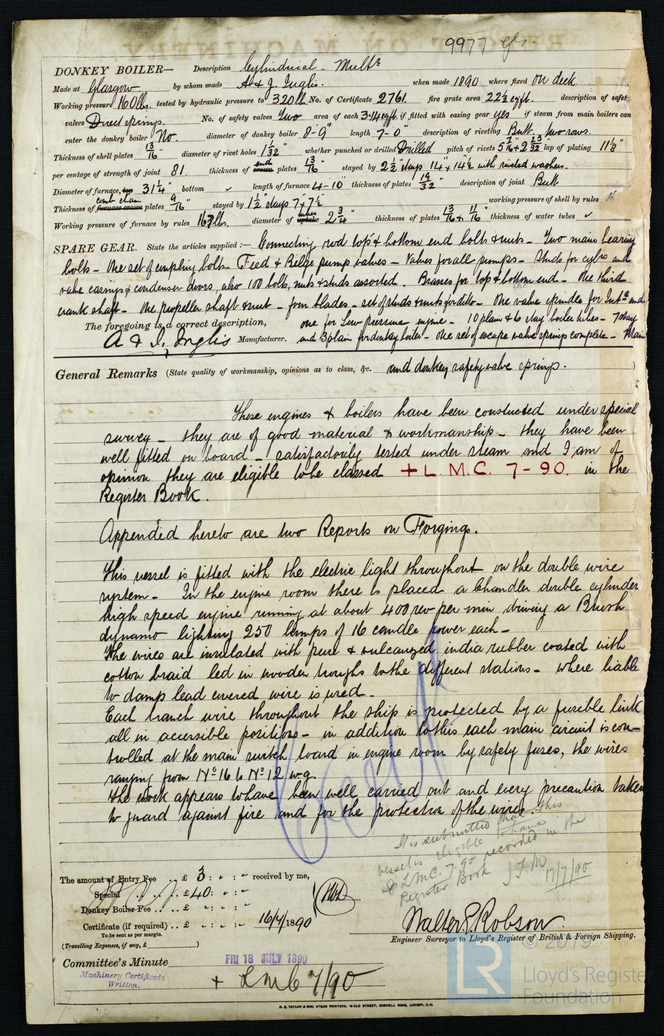 9977 gls.
DONKEY BOILER— Description Cylindrical Multr
Made at Glasgow by whom made A & J. Inglis. when made 1890 where fixed on deck
Working pressure 160 lbs. tested by hydraulic pressure to 320 lb No. of Certificate 2761. fire grate area 22½ sqft. description of safety
valves Direct springs. No. of safety valves Two area of each 3.14 sqft if fitted with easing gear yes if steam from main boilers can
enter the donkey boiler No. diameter of donkey boiler 8-9" length 7-0" description of riveting Butt. two rows.
Thickness of shell plates 13/16" diameter of rivet holes 1 1/32" whether punched or drilled Drilled pitch of rivets lap of plating 11 1/8"
per centage of strength of joint 81 thickness of plates 13/16" stayed by 2½" stays 14" x 14½" with riveted washers.
Diameter of furnace, 31¼" bottom length of furnace 4-10" thickness of plates 19/32" description of joint Butt
Thickness of comb. cham. plates 9/16" stayed by 1½ stays 7 x 7½ working pressure of shell by rules
Working pressure of furnace by rules 167 lbs. diameter of 2¾" thickness of plates 13/16 & 11/16" thickness of water tubes ✓
SPARE GEAR. State the articles supplied :— Connecting rod top & bottom end bolts & nuts — Two main bearing
bolts — One set of coupling bolts — Feed & Bilge pump valves — valves for all pumps — Studs for cylrs and
valve casings & condenser doors, also 100 bolts, nuts & studs assorted. Brasses for top & bottom end — One third
crank shaft — One propeller shaft & nut — four blades — set of studs & nuts for ditto — One valve spindle for Int. and
The foregoing is a correct description, one for Low pressure engine — 10 plain & 6 stay boiler tubes — 7 stay
A & J. Inglis Manufacturer. and 3 plain for donkey boiler — One set of escape valve springs complete — Main
General Remarks (State quality of workmanship, opinions as to class, &c. and donkey safety valve springs.
These engines & boilers have been constructed under special
survey — they are of good material & workmanship — they have been
well fitted on board — satisfactorily tested under steam and I am of
opinion they are eligible to be classed + L M.C. 7-90. in the
Register Book.
Appended hereto are two Reports on Forgings.
This vessel is fitted with the electric light throughout on the double wire
system — In the engine room there is placed a Chandler double cylinder
high speed engine running at about 400 rev per min driving a Brush
dynamo lighting 250 lamps of 16 candle power each —
The wires are insulated with pure & vulcanized india rubber coated with
cotton braid led in wooden troughs to the different stations — where liable
to damp lead covered wire is used.
Each branch wire throughout the ship is protected by a fusible link
all in accessible positions — in addition to this each main circuit is con-
trolled at the main switch board in engine room by safety fuses, the wires
ranging from No 16 to No 12 w.g.
The work appears to have been well carried out and every precaution taken
to guard against fire and for the protection of the wires.
It is submitted that this
vessel is eligible to have
+ L.M.C. 7.90 recorded in the
Register Book
17/7/90
The amount of Entry Fee .. £ 3 : - : - received by me,
Special .. £ 40 : - : -
Donkey Boiler Fee .. £ : :
Certificate (if required) .. £ : : 16/7/1890
To be sent as per margin.
(Travelling Expenses, if any, £ )
Walter S. Robson
Engineer Surveyor to Lloyd's Register of British & Foreign Shipping.
Committee's Minute FRI 18 JULY 1890
Machinery Certificate
Written.
+ L M C 7/90
LR
© 2019
Lloyd's Register
Foundation